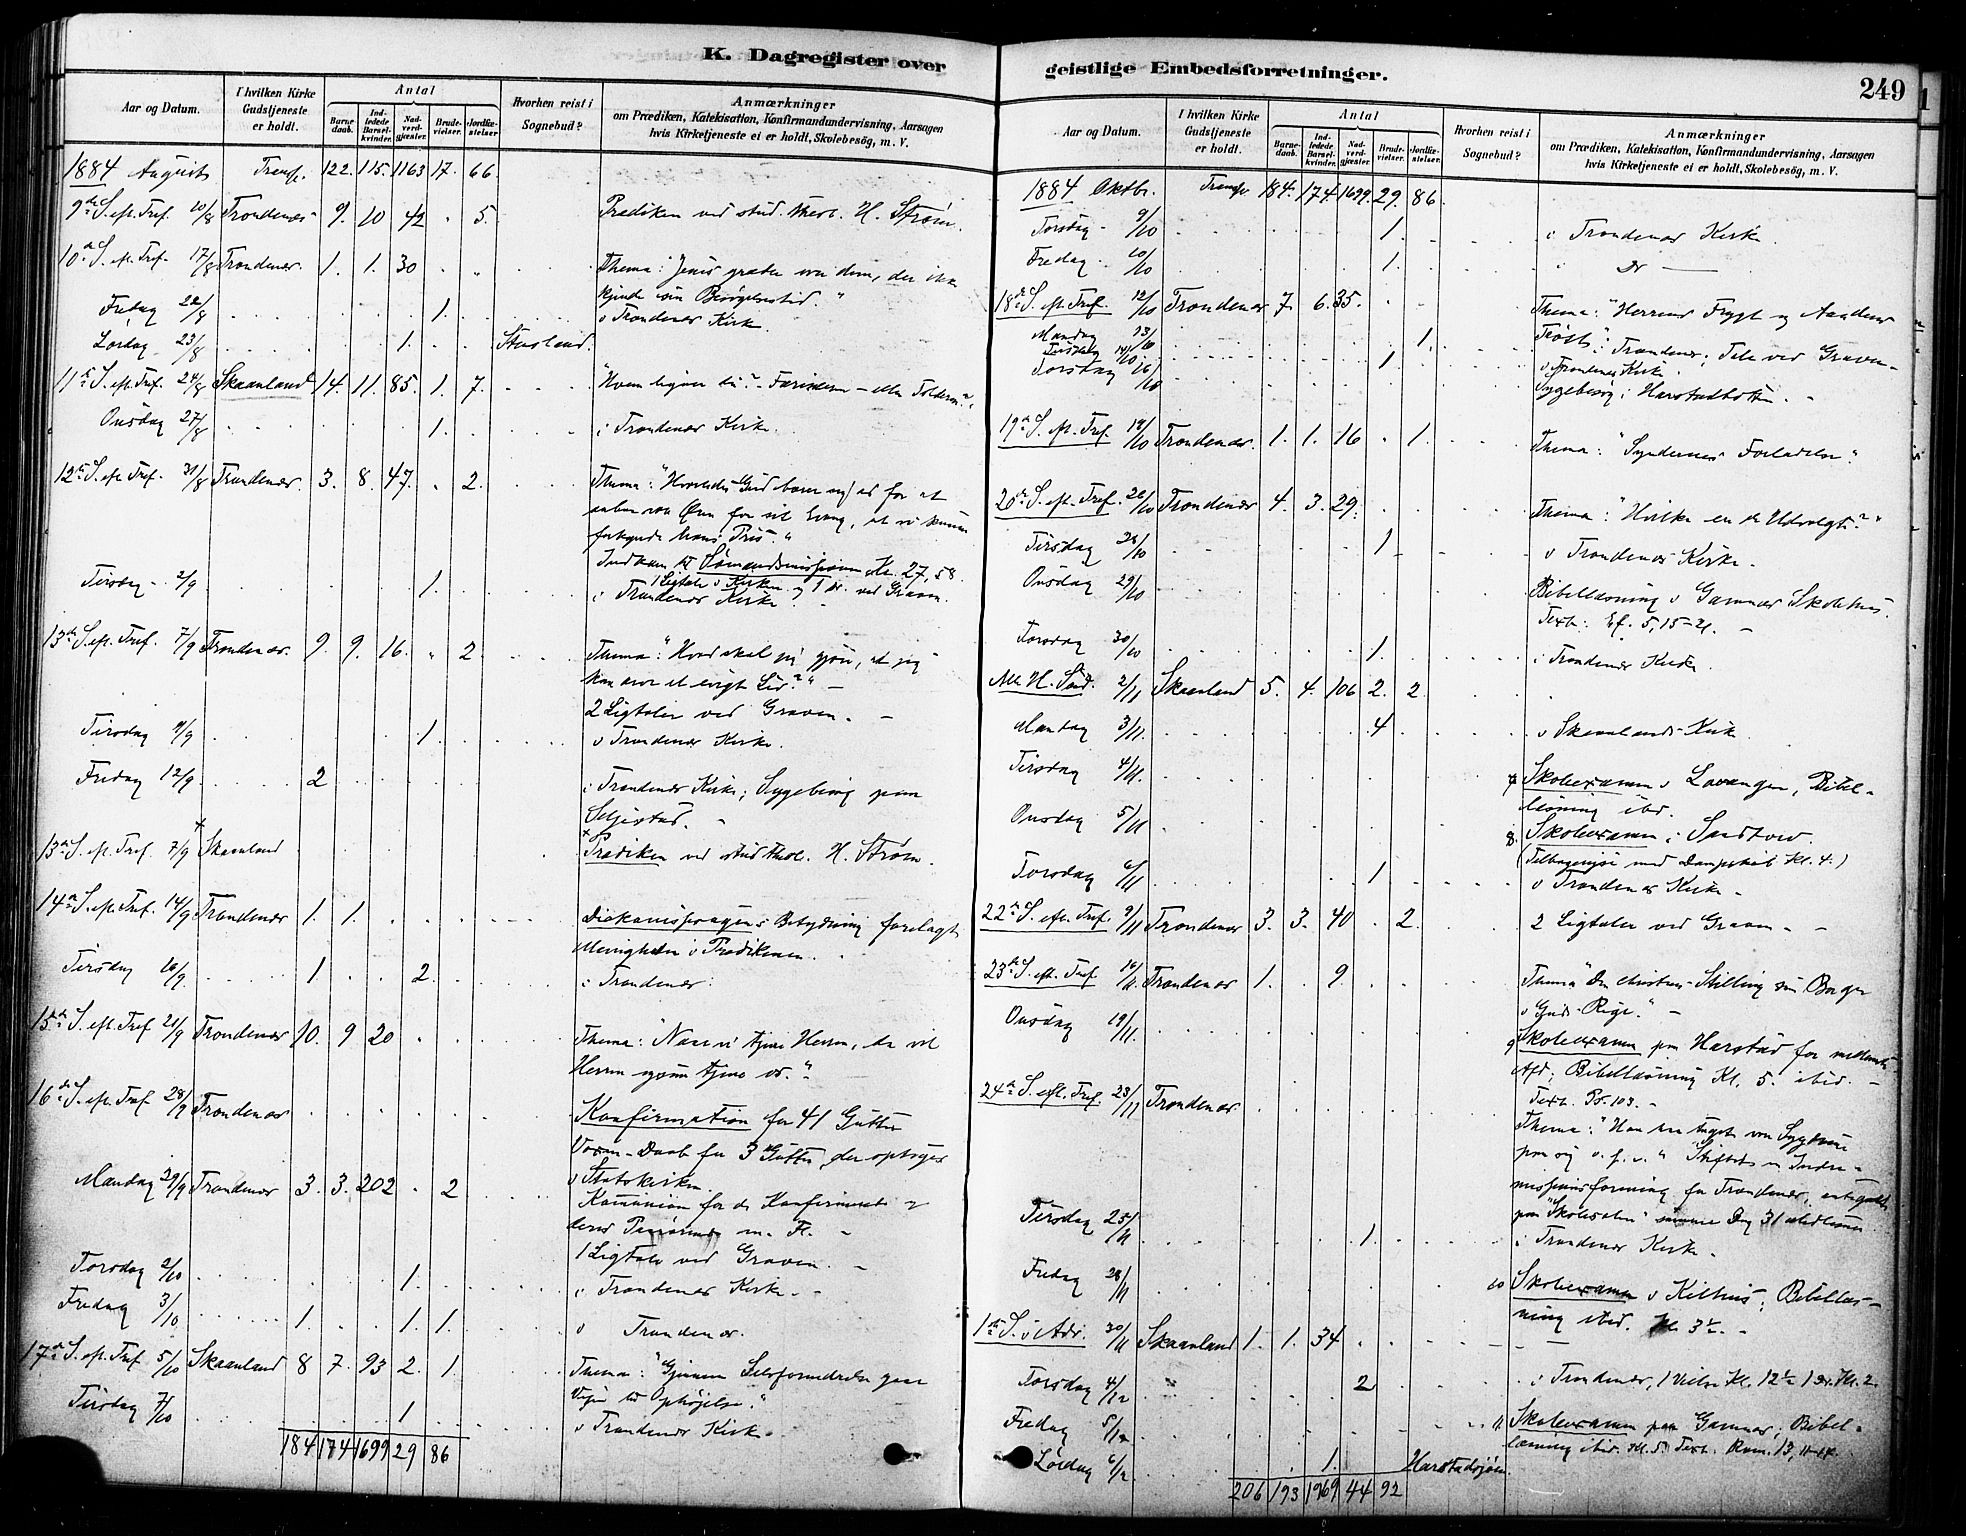 K. Dagregister over
Aar og Datum. I hvilken Kirke Gudstjeneste er holdt. Antal Barnedaab. Indledede Barselkvinder. Nadverdgjæster. Brudevielser. Jordfæstelser Hvorhen reist i Sognebud? Anmærkninger om Prædiken, Katekisation, Konfirmandundervisning, Aarsagen hvis Kirketjeneste ei er holdt, Skolebesög, m. V.
1884 August Transp. 122. 115. 1163 17. 66
9de S. eft. Tref. 10/8 Trondenæs 9. 10 42 . 5. Prædiken ved stud. theol. H. Strøm.
10de S. eft. Tref. 17/8 Trondenæs. 1. 1. 30 Thema: "Jesus græder over dem, der ikke
kjende sin Besøgelsestid."
Fredag 22/8 1. i Trondenæs Kirke.
Lørdag 23/8 1.
11te S. eft. Tref. 24/8 Skaanland 14. 11. 85. 1. 7. "Hvem ligner du? Farisæeren eller Tolderen?"
Onsdag 27/8 1. i Trondenæs Kirke.
12te S. eft. Tref. 31/8 Trondenæs. 3. 8. 47. . 2. Thema: "Hvorledes Gud bærer sig ad for at
aabne vor Øren for sit Evang., at vi kunne
forkynde hans Pris."
Indkom til Sømandsmissionen Kr. 27,58.
1 Ligtale i Kirken og 1 do. ved Graven.
Tirsdag 2/9 1. i Trondenæs Kirke.
13de S. eft. Tref. 7/9 Trondenæs. 9. 9. 16. . 2. Thema: "Hvad skal jeg gjøre, at jeg
kan arve et evigt Liv?"
2 Ligtaler ved Graven.
Tirsdag 9/9 1. i Trondenæs Kirke.
Fredag 12/9 2 i Trondenæs Kirke; Sygebesøg paa
Seljestad.
13de S. eft. Tref. 7/9 Skaanland Prædiken ved stud. theol. H. Strøm.
14de S. eft. Tref. 14/9 Trondenæs 1. 1. Diakonissesagens Betydning forelagt
Menigheden i Prædikenen.
Tirsdag 16/9 1 2 i Trondenæs.
15de S. eft. Tref 21/9 Trondenæs 10. 9 20 Thema: "Naar vi tjene Herren, da vil
Herren igjen tjene os."
16de S. eft. Tref 28/9 Trondenæs Konfirmation for 41 Gutter
Voxen-Daab for 3 Gutter, der optoges
i Statskirken.
Mandag 29/9 Trondenæs 3. 3. 202 . 2 Kommunion for de Konfirmerede og
deres Paarørende m. Fl.
1 Ligtale ved Graven.
Torsdag 2/10 1. i Trondenæs Kirke.
Fredag 3/10 1. 1. 1. i Trondenæs.
17de S. eft. Tref 5/10 Skaanland 8 7. 93 2. 1. Thema: "Gjennem Selvfornedrelse gaar
Veien til Ophøjelse."
Tirsdag 7/10 1 i Trondenæs Kirke.
184 174 1699 29 86
geistlige Embedsforretninger.
249
Aar og Datum. I hvilken Kirke Gudstjeneste er holdt. Antal Barnedaab. Indledede Barselkvinder. Nadverdgjæster. Brudevielser. Jordfæstelser. Hvorhen reist i Sognebud? Anmærkninger om Prædiken, Katekisation, Konfirmandundervisning, Aarsagen hvis Kirketjeneste ei er holdt, Skolebesög, m. V.
1884 Oktbr. Transp 184. 174. 1699. 29. 86
Torsdag 9/10 1. i Trondenæs Kirke.
Fredag 10/10 1. Do
18de S. eft. Tref. 12/10 Trondenæs 7. 6. 35. Thema: "Herrens Frygt og Aandens
Trøst."
Mandag 13/10 1. Trondenæs; Tale ved Graven
Tirsdag 14/10 1 i Trondenæs Kirke.
Torsdag 16/10 Sygebesøg i Harstadbotten.
19de S. eft. Tref. 19/10 Trondenæs. 1. 1. 16 . 1. Thema: "Syndernes Forladelse".
20de S. eft. Tref. 26/10 Trondenæs 4. 3. 29. Thema: "Hvilke ere de Udvalgte?"
Tirsdag 28/10 1 i Trondenæs Kirke.
Onsdag 29/10 Bibellæsning i Gamnæs Skolehus.
Text: Ef. 5,15-21.
Torsdag 30/10 1. i Trondenæs Kirke.
Alle H. Sønd. 2/11 Skaanland 5. 4. 106 2. 2.
Mandag 3/11. 4 i Skaanlands Kirke.
Tirsdag 4/11. 7 Skoleexamen i Lavangen, Bibel-
læsning ibid.
Onsdag 5/11 8. Skoleexamen i Sandtorv.
(Tilbagerejse med Dampskib Kl. 4.)
Torsdag 6/11 1 i Trondenæs Kirke
22de S. eft. Tref. 9/11 Trondenæs 3. 3. 40 . 2. 2 Ligtaler ved Graven
23de S. eft. Tref 16/11. Trondenæs 1. . 9 Thema "Den Christnes Stilling som Borger
i Guds Rige."
Onsdag 19/11. 9 Skoleexamen paa Harstad for mellemste
Afd; Bibellæsning Kl. 5. ibid.
Text. Ps. 103.
24de S. eft. Tref. 23/11 Trondenæs. Thema: "Han tog vor Sygdom
paa sig o. s. v."
missionsforening for Trondenæs,
paa "Skolesalen" samme Dag 31 Medlemmer
Tirsdag 25/11 1. i Trondenæs Kirke.
Fredag 28/11 10 Skoleexamen i Kilhus; Bibellæs-
ning ibid. Kl. 3½.
1ste S. i Adv. 30/11 Skaanland 1. 1. 34
Torsdag 4/12 2 i Trondenæs, 1 Vielse Kl. 12½ 1 do. Kl. 2.
Fredag 5/12 11 Skoleexamen paa Gamnæs; Bibel-
læsning ibid. Kl. 5. Text. Rom. 13, 11-14.
Lørdag 6/12 1. Harstadsjøen.
206 193 1969 44 92